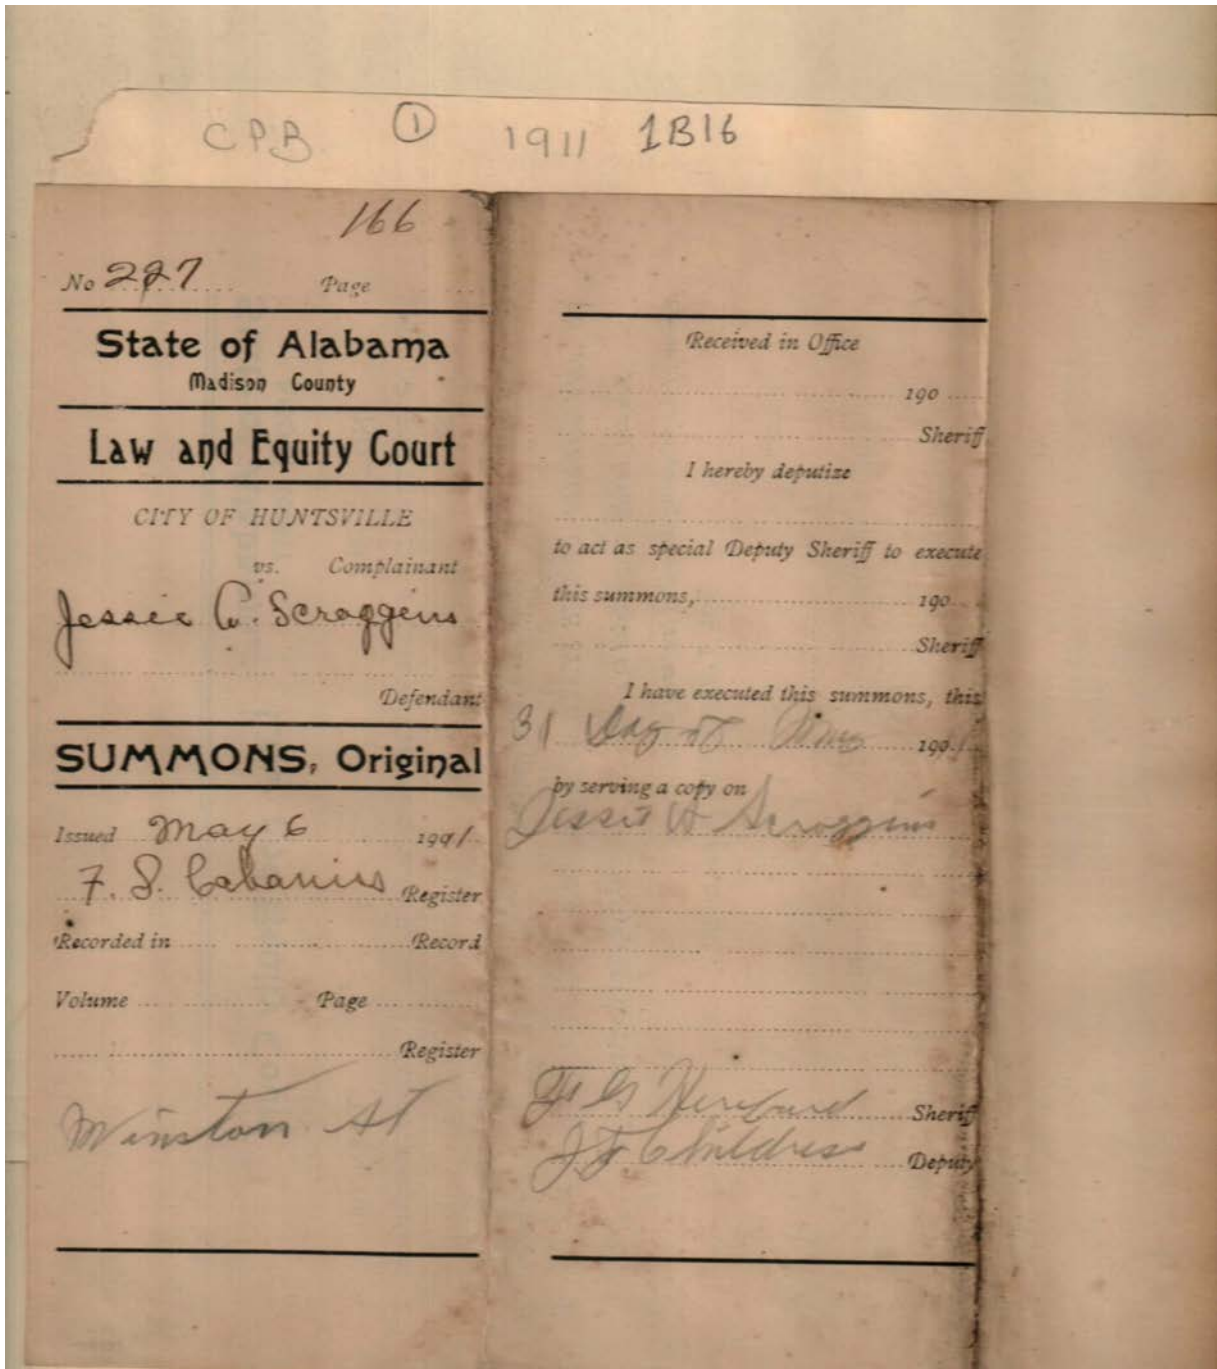 CPB ① 1911 1B16
166
No 227 Page
State of Alabama
Madison County
Law and Equity Court
CITY OF HUNTSVILLE
vs. Complainant
Jessie C. Scroggins
Defendant
SUMMONS, Original
Issued May 6 1911
F. S. Cabaniss Register
Recorded in Record
Volume Page
Register
Winston St
Received in Office
190
Sheriff
I hereby deputize
to act as special Deputy Sheriff to execute
this summons, 190
Sheriff
I have executed this summons, this
31 Day of 190
by serving a copy on
Jessie Scroggins
Sheriff
J. F. Childress Deputy